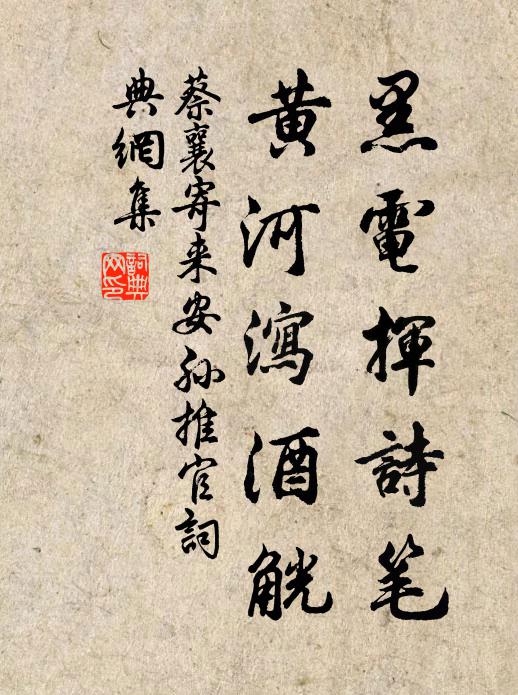 黑電揮詩笔
黄河瀉酒觥
蔡襄寄来安孙推官詞
典網集
詞典
网印